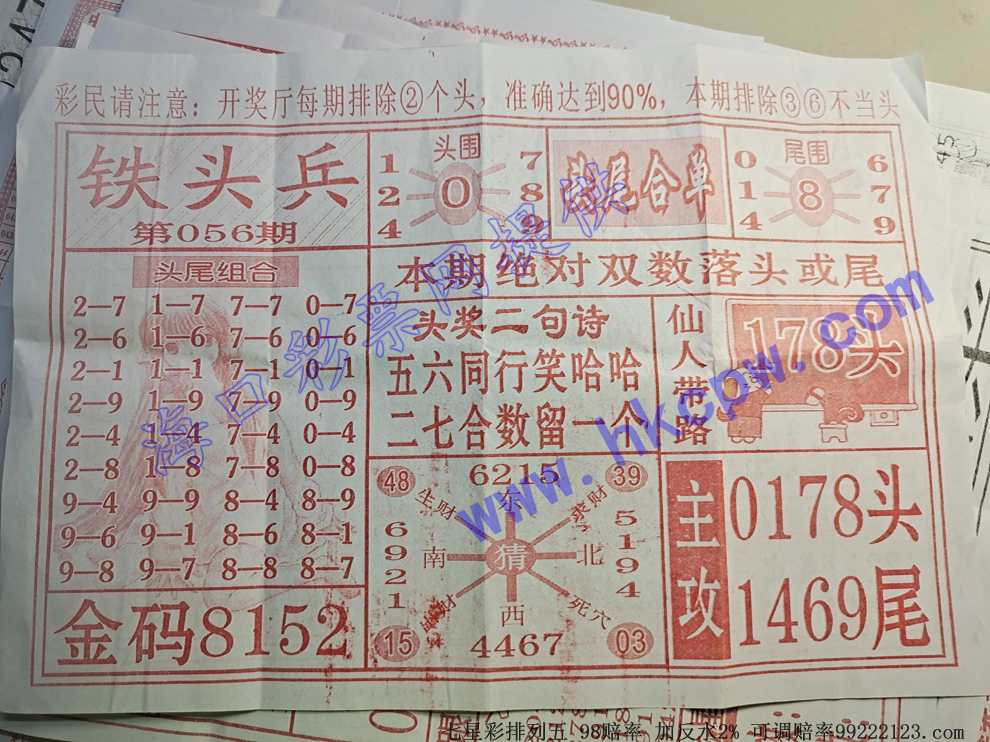 彩民请注意：开奖厅每期排除②个头，准确达到90%，本期排除③⑥不当头
铁头兵
第056期
头围
1 7
2 0 8
4 9
尾合单
尾围
0 6
1 8 7
4 9
头尾组合
2—7 1—7 7—7 0—7
2—6 1—6 7—6 0—6
2—1 1—1 7—1 0—1
2—9 1—9 7—9 0—9
2—4 1—4 7—4 0—4
2—8 1—8 7—8 0—8
9—4 9—9 8—4 8—9
9—6 9—1 8—6 8—1
9—8 9—7 8—8 8—7
金码8152
本期绝对双数落头或尾
头奖二句诗
五六同行笑哈哈
二七合数留一个
仙人带路
178头
48 6215 39
生财 东 发财
6921 南 猜 北 5194
财 西 死穴
15 4467 03
主攻
0178头
1469尾
海口彩票网提供
www.hkcpw.com
七星彩排列五 98赔率 加反水2% 可调赔率99222123.com